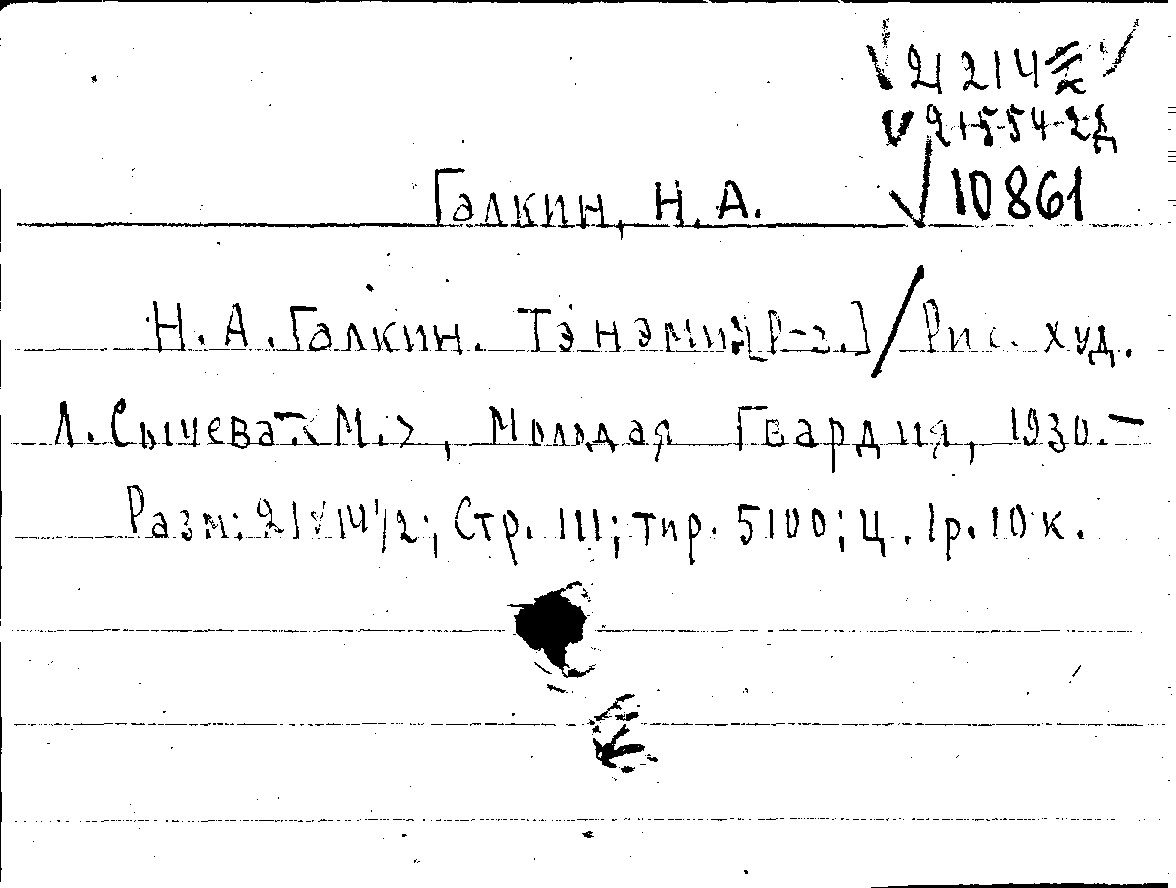 √ 21214 √
√ 21554-2д
Галкин, Н. А. √ 10861
Н. А. Галкин. Тэнэми [Р-з.] / Рис. худ.
Л. Сычева. <М.>, Молодая Гвардия, 1930. —
Разм: 21х14 1/2; Стр. 111; тир. 5100; Ц. 1р. 10 к.